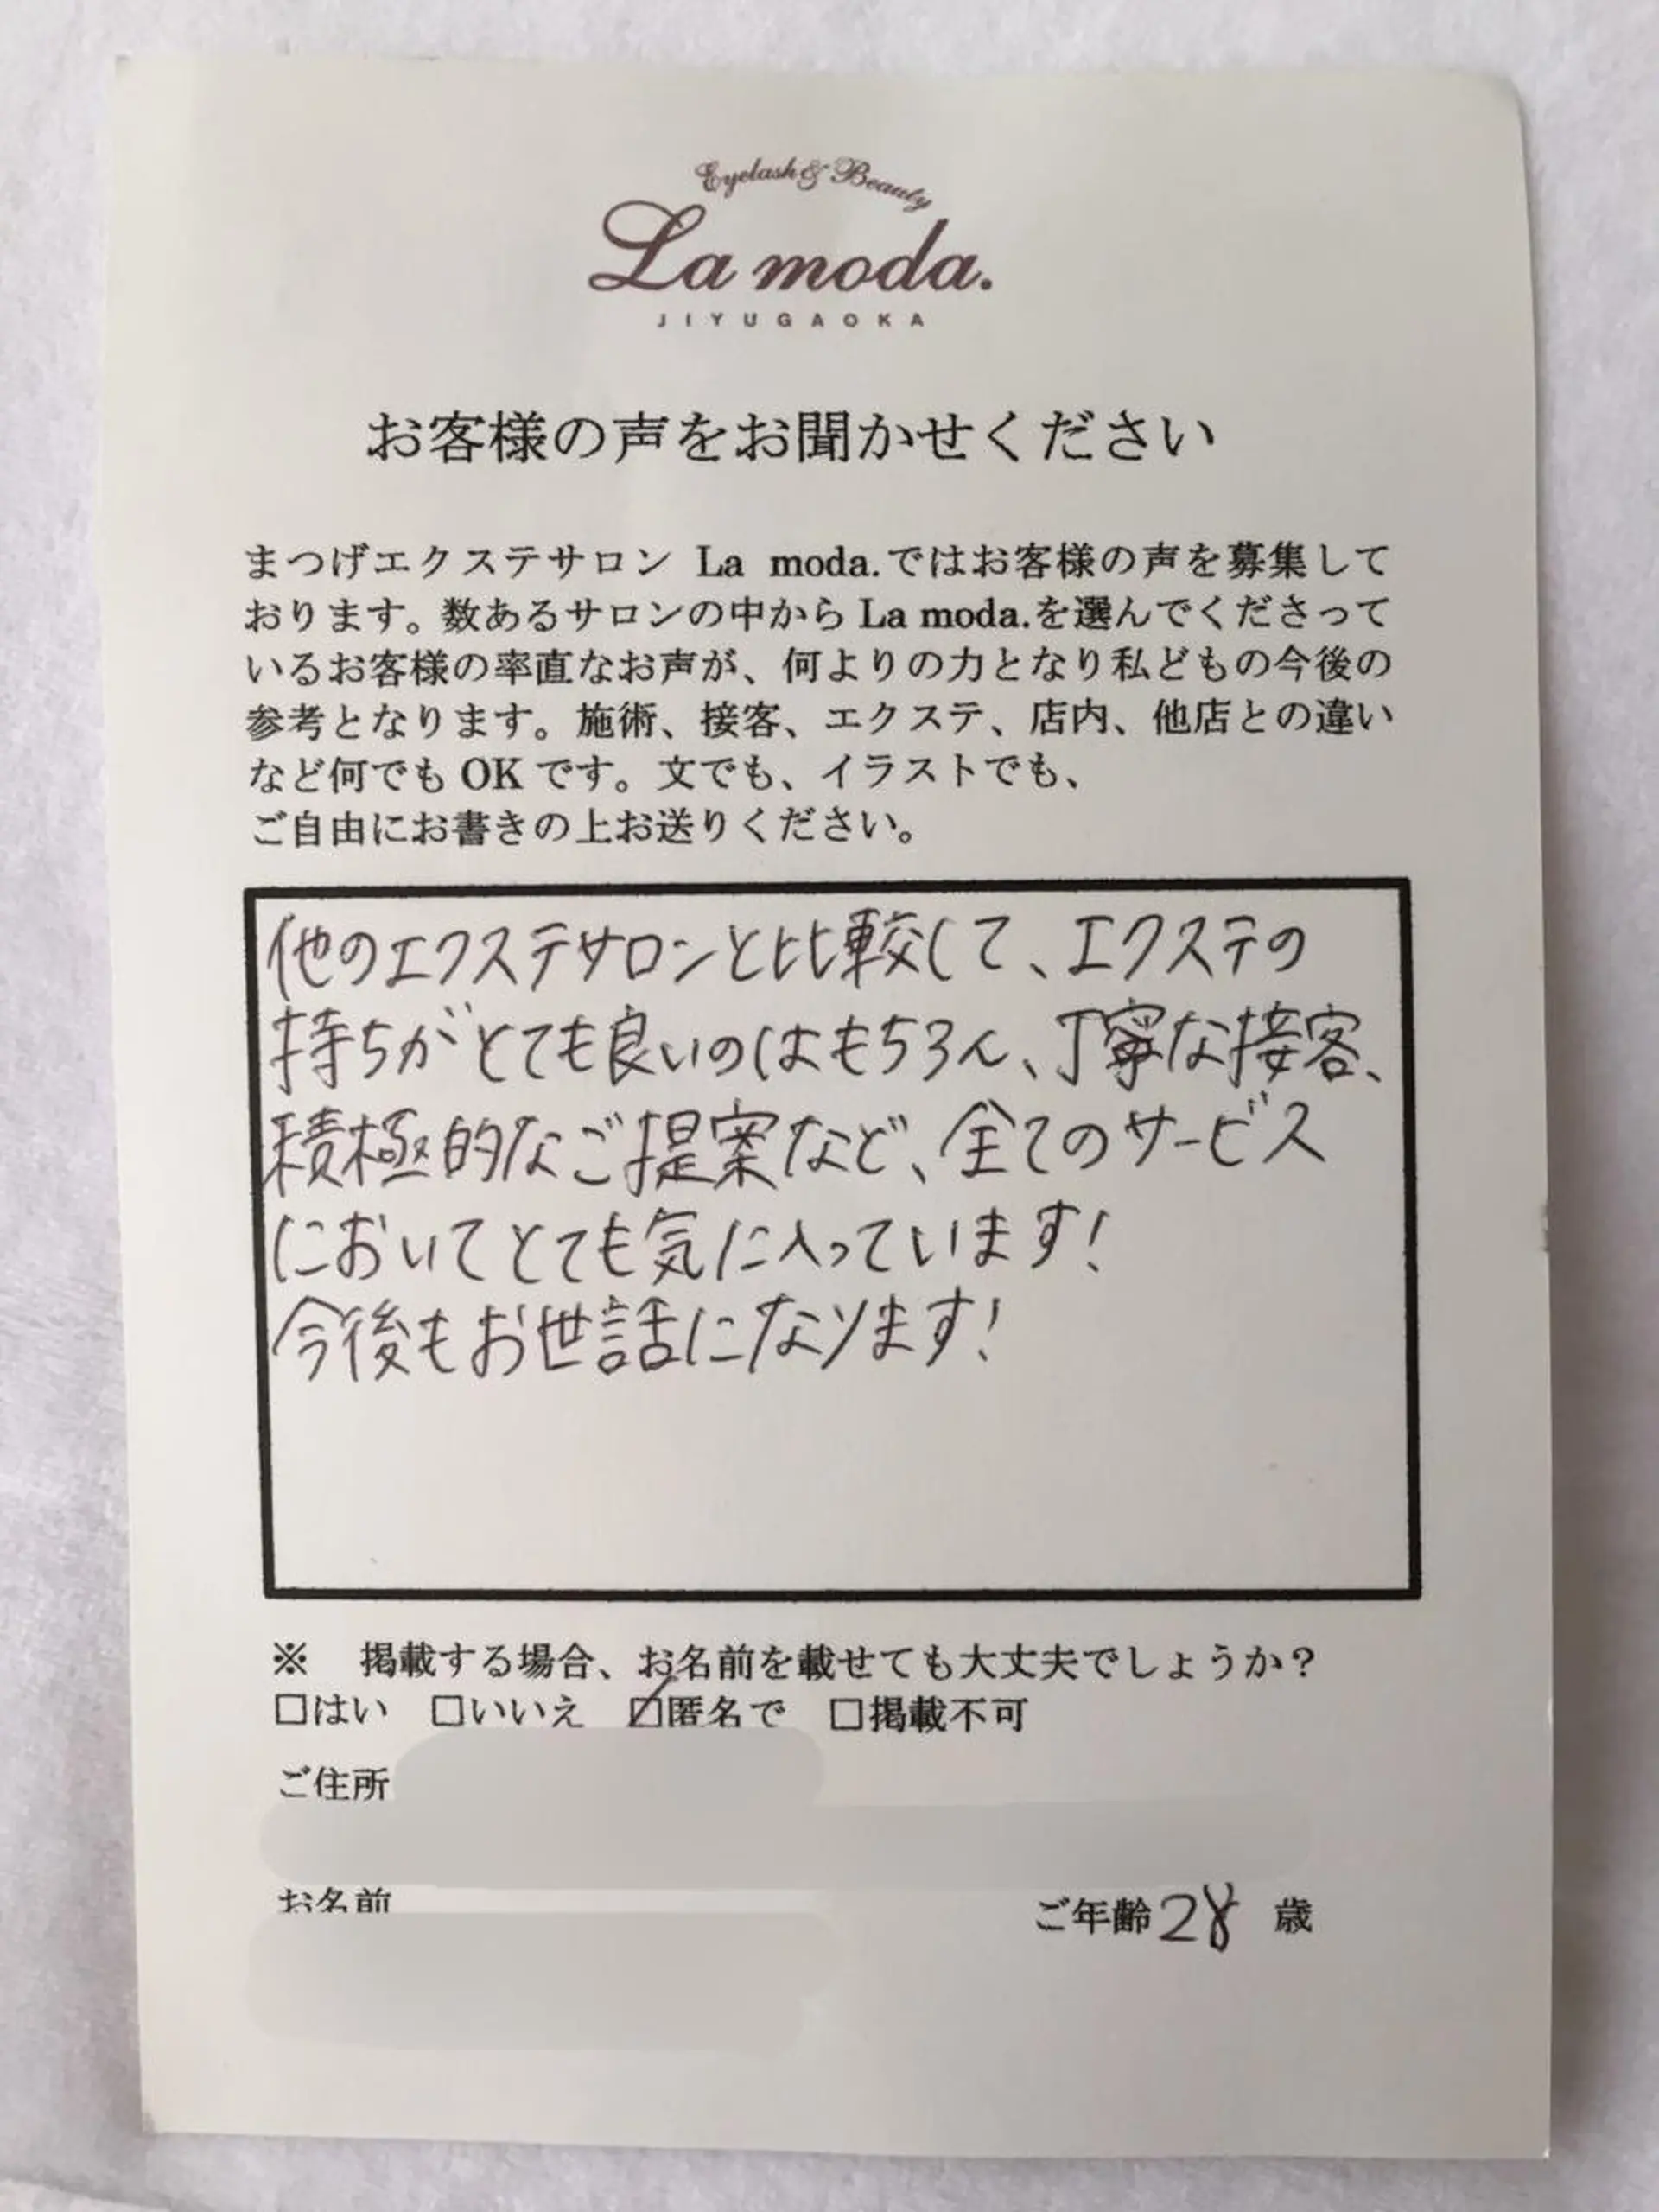 Eyelash & Beauty
La moda.
JIYUGAOKA
お客様の声をお聞かせください
まつげエクステサロン La moda.ではお客様の声を募集して
おります。数あるサロンの中から La moda.を選んでくださって
いるお客様の率直なお声が、何よりの力となり私どもの今後の
参考となります。施術、接客、エクステ、店内、他店との違い
など何でも OK です。文でも、イラストでも、
ご自由にお書きの上お送りください。
他のエクステサロンと比較して、エクステの
持ちがとても良いのはもちろん、丁寧な接客、
積極的なご提案など、全てのサービス
においてとても気に入っています!
今後もお世話になります!
※ 掲載する場合、お名前を載せても大丈夫でしょうか?
□はい □いいえ ☑匿名で □掲載不可
ご住所
お名前 ご年齢 28 歳